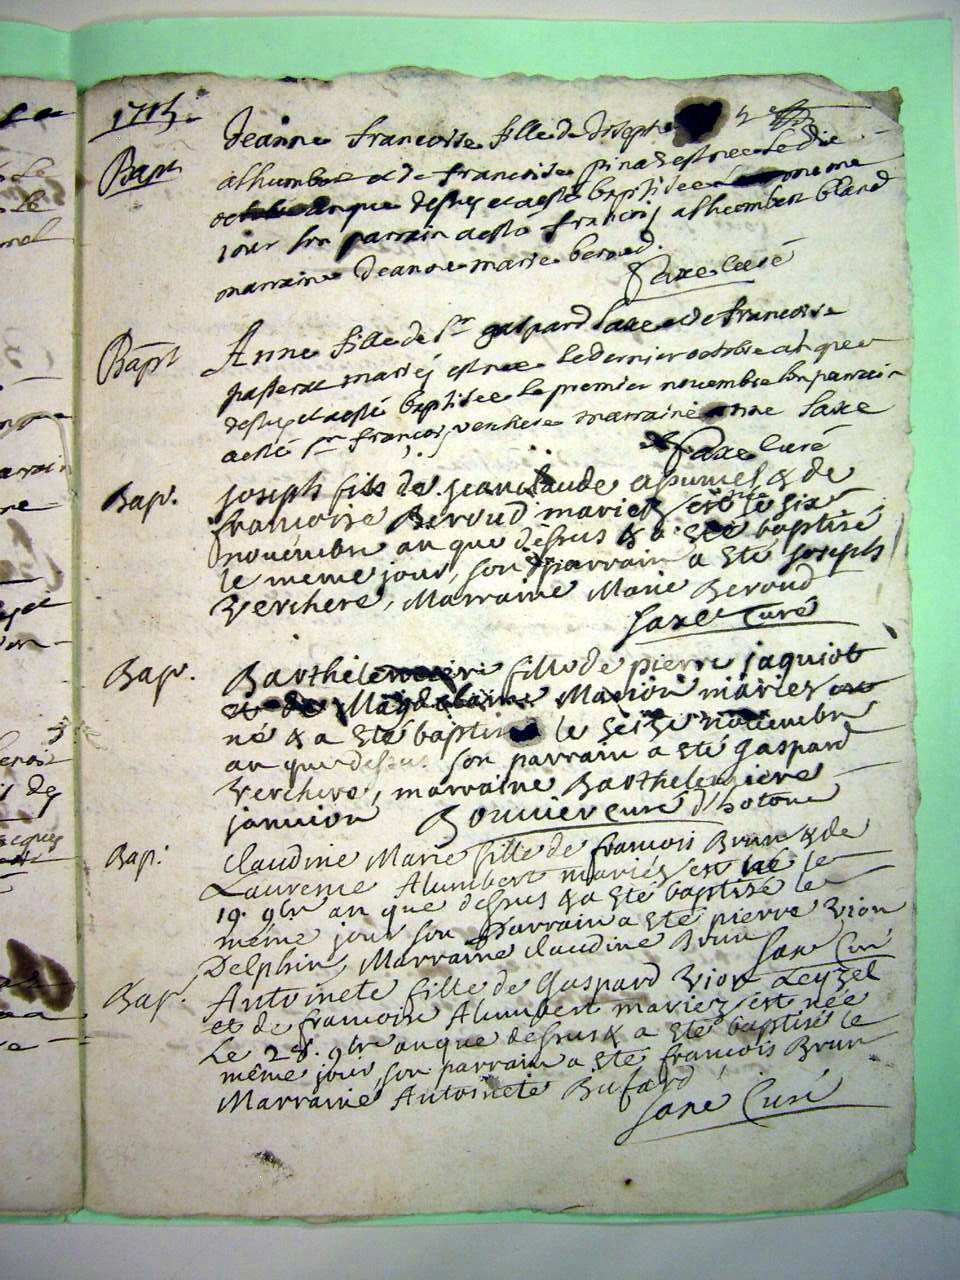 1715.
Bapt Jeanne francoise fille de Joseph
alhumbert et de francoise pinaz est nee le die
octobre an que dessus et a esté baptisee le meme
jour son parrain a esté françois alhumbert bland
marraine Jeanne marie beroud.
Saxe Curé
Bapt Anne fille de Sr gaspard Saxe et de francoise
passerat mariéz est nee le dernier octobre an que
dessus et a esté baptisee le premier novembre son parrain
a esté Sr françois verchere marraine anne Saxe
Saxe Curé
Bap. Joseph fils de Jean claude &  de
francoise Beroud mariez est né le six
novembre an que dessus & a été baptisé
le meme jour, son parrain a été Joseph
Verchere, Marraine Marie Beroud
Saxe Curé
Bap. Barthelemiere fille de pierre jaquiot
et de Magdelaine Marion mariez est
né & a été baptisé le seize novembre
an que dessus son parrain a été gaspard
Verchere, marraine Barthelemiere
janvion Bouvier curé d'hotone
Bap. Claudine Marie fille de francois Brun & de
Laurence Alumbert mariés est née le
19. 9br an que dessus & a été baptisé le
même jour son Parrain a été pierre Vion
Delphin, Marraine Claudine Brun Saxe Curé
Bap. Antoinete fille de Gaspard Vion Leyzel
et de francoise Alumbert mariez est née
Le 28. 9br an que dessus & a été baptisée le
même jour son parrain a été francois Brun
Marraine Antoinete Bufard
Saxe Curé